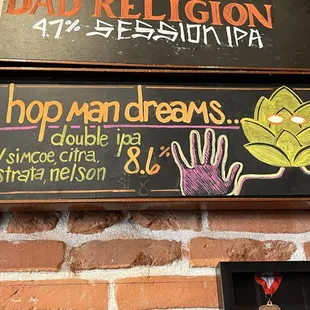 DAD RELIGION
4.7% SESSION IPA
hop man dreams...
double ipa
w/simcoe, citra, 8.6%
strata, nelson